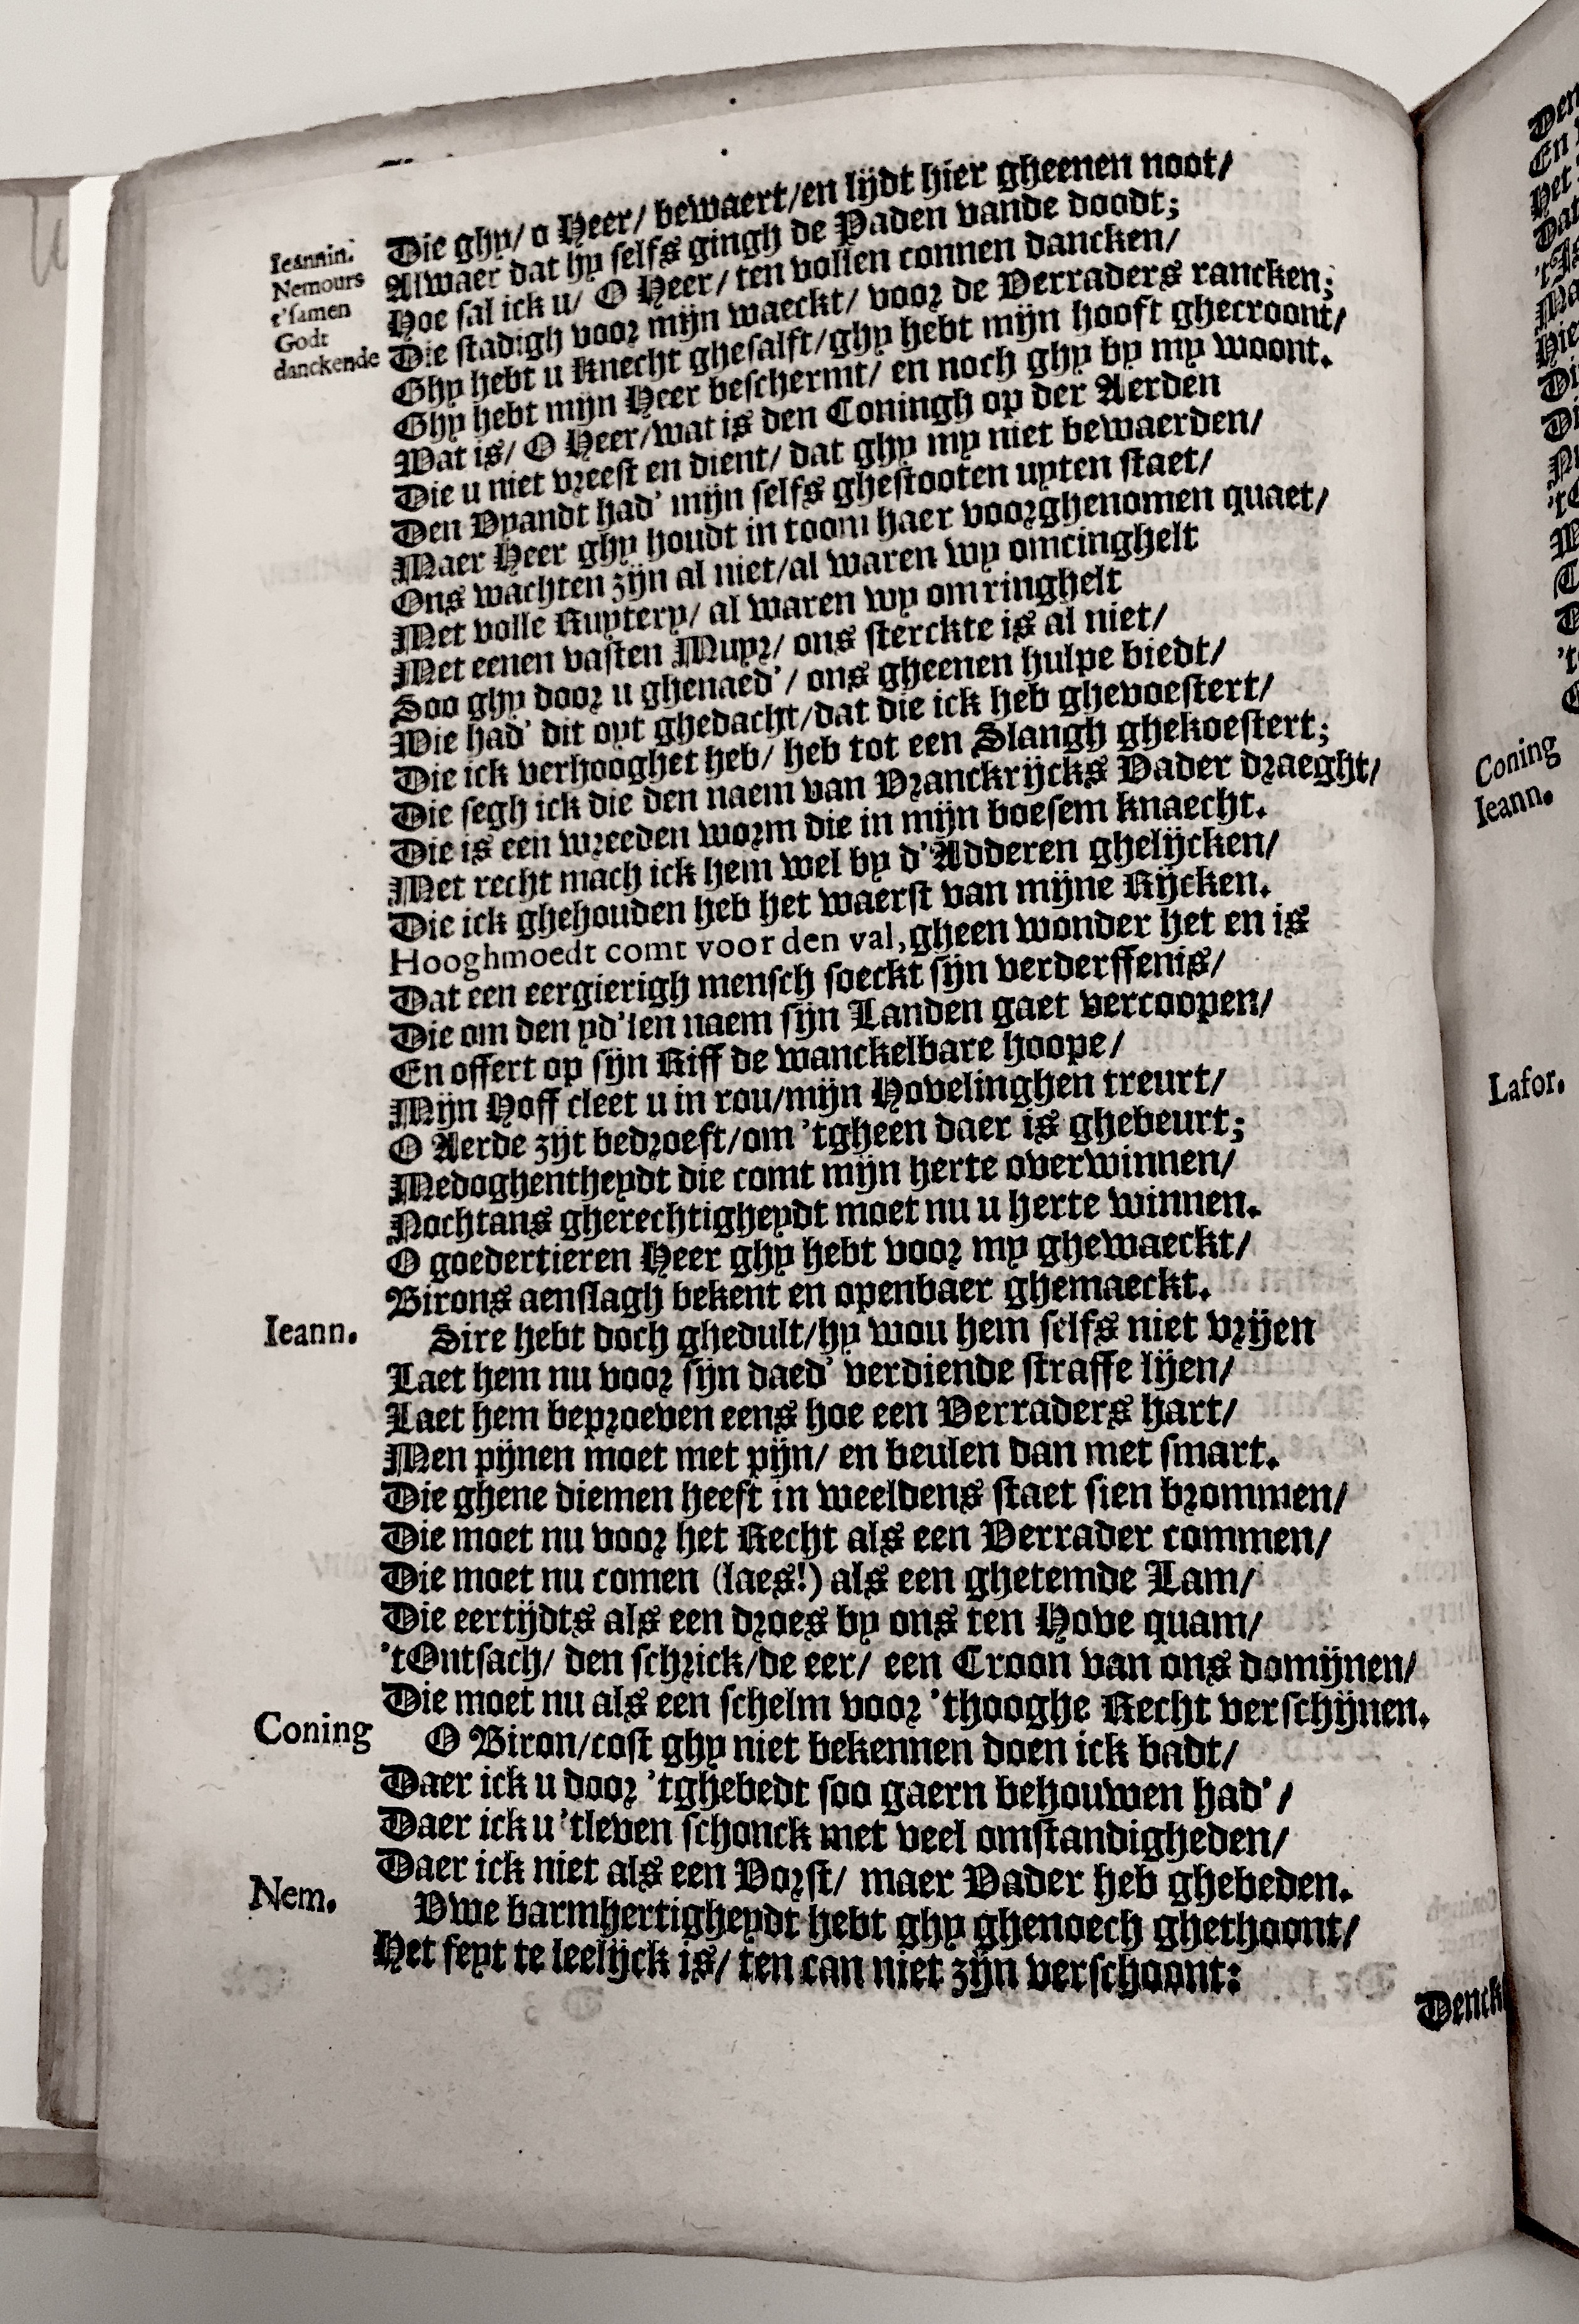 Die ghy/ o Heer/ bewaert/en lijdt hier gheenen noot/
Ieannin. Alwaer dat hy selfs gingh de Paden vande doodt;
Nemours Hoe sal ick u/ O Heer/ ten vollen connen dancken/
t'samen
Godt
danckende Die stadigh voor mijn waeckt/ voor de Verraders rancken;
Ghy hebt u Knecht ghesalft/ghy hebt mijn hooft ghecroont/
Ghy hebt mijn Heer beschermt/ en noch ghy by my woont.
Wat is/ O Heer/wat is den Coningh op der Aerden
Die u niet vreest en dient/ dat ghy my niet bewaerden/
Den Vyandt had' mijn selfs ghestooten uyten staet/
Maer Heer ghy houdt in toom haer voorghenomen quaet/
Ons wachten zijn al niet/al waren wy omcinghelt
Met volle Ruytery/ al waren wy omringhelt
Met eenen vasten Muyr/ ons sterckte is al niet/
Soo ghy door u ghenaed'/ ons gheenen hulpe biedt/
Wie had' dit oyt ghedacht/dat die ick heb ghevoestert/
Die ick verhooghet heb/ heb tot een Slangh ghekoestert;
Die segh ick die den naem van Vranckrijcks Vader draeght/
Die is een wreeden worm die in mijn boesem knaecht.
Met recht mach ick hem wel by d'Adderen ghelijcken/
Die ick ghehouden heb het waerst van mijne Rijcken.
Hooghmoedt comt voor den val, gheen wonder het en is
Dat een eergierigh mensch soeckt sijn verderffenis/
Die om den yd'len naem sijn Landen gaet vercoopen/
En offert op sijn Riff de wanckelbare hoope/
Mijn Hoff cleet u in rou/mijn Hovelinghen treurt/
O Aerde zijt bedroeft/om 'tgheen daer is ghebeurt;
Medoghentheydt die comt mijn herte overwinnen/
Nochtans gherechtigheydt moet nu u herte winnen.
O goedertieren Heer ghy hebt voor my ghewaeckt/
Birons aenslagh bekent en openbaer ghemaeckt.
Ieann. Sire hebt doch ghedult/hy wou hem selfs niet vrijen
Laet hem nu voor sijn daed' verdiende straffe lijen/
Laet hem beproeven eens hoe een Verraders hart/
Men pijnen moet met pijn/ en beulen dan met smart.
Die ghene diemen heeft in weeldens staet sien brommen/
Die moet nu voor het Recht als een Verrader commen/
Die moet nu comen (laes!) als een ghetemde Lam/
Die eertijdts als een droes by ons ten Hove quam/
'tOntsach/ den schrick/de eer/ een Croon van ons domijnen/
Die moet nu als een schelm voor 'thooghe Recht verschijnen.
Coning O Biron/cost ghy niet bekennen doen ick badt/
Daer ick u door 'tghebedt soo gaern behouwen had'/
Daer ick u 'tleven schonck met veel omstandigheden/
Daer ick niet als een Vorst/ maer Vader heb ghebeden.
Nem. Vwe barmhertigheydt hebt ghy ghenoech ghethoont/
Het feyt te leelijck is/ ten can niet zijn verschoont:
Denck
Coning
Ieann.
Lafor.